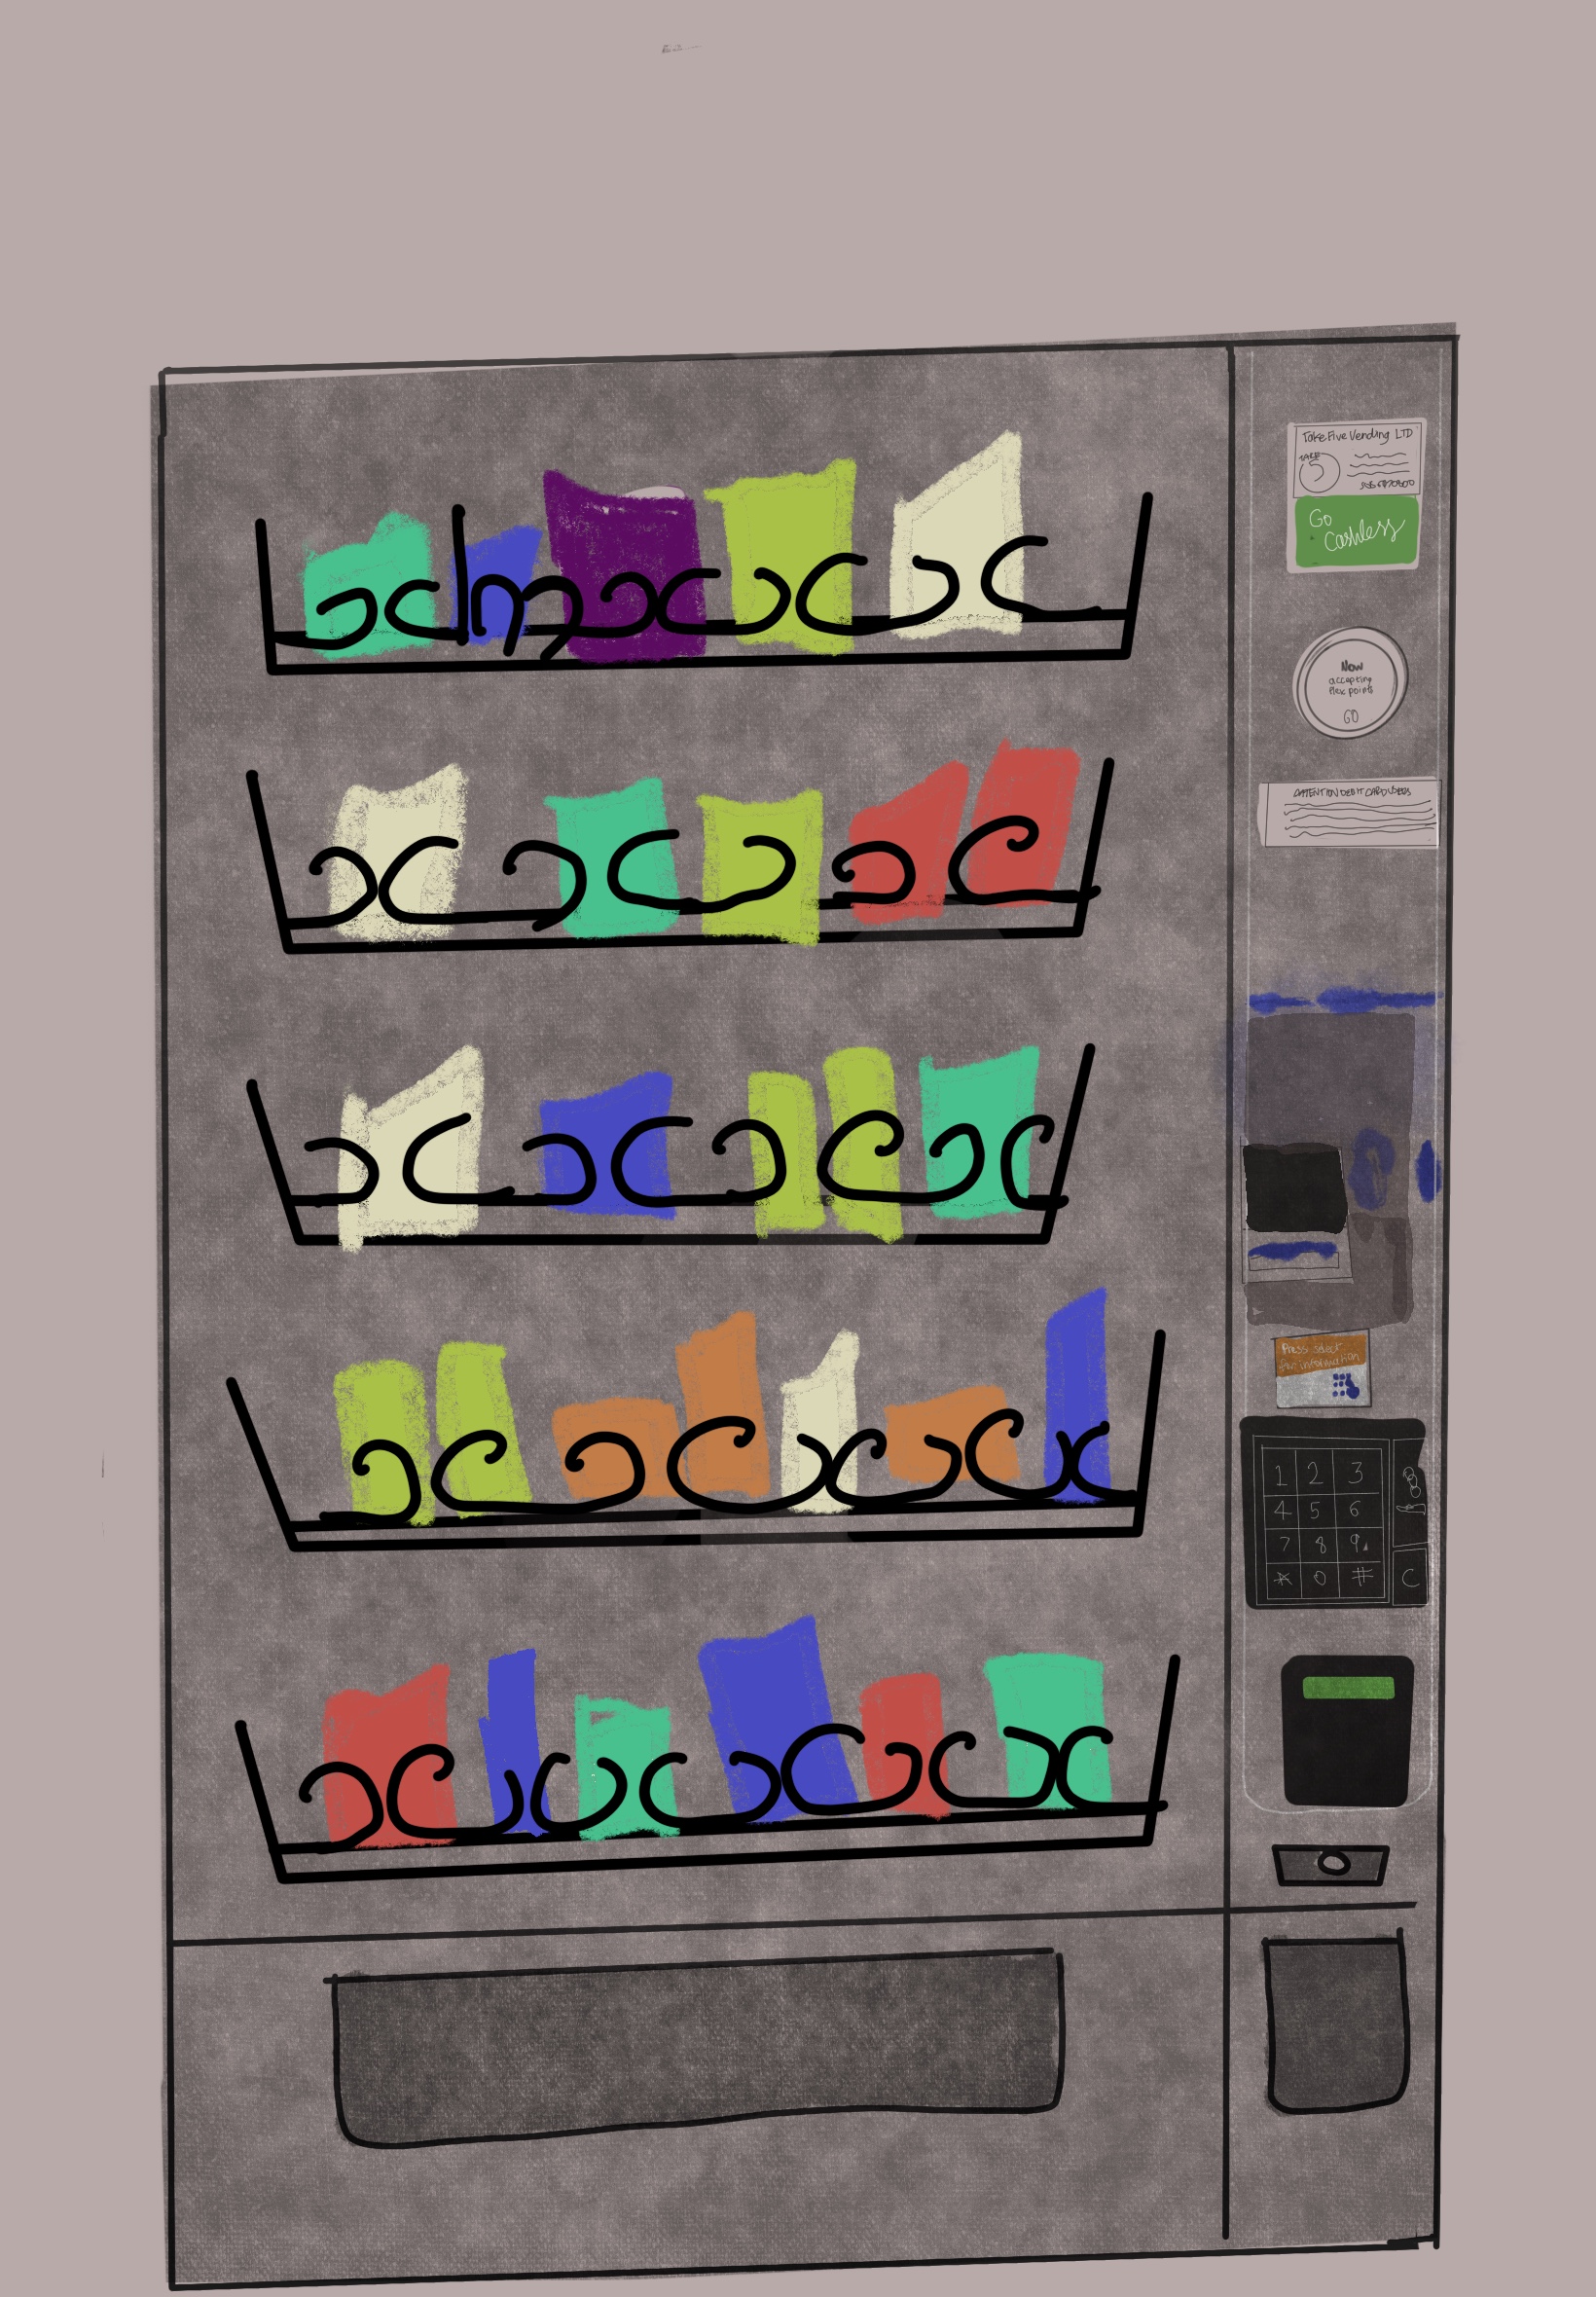 Take Five Vending LTD
TAKE
5
Go
Cashless
Now
accepting
flex points
GO
ATTENTION DEBIT CARD USERS
Press select
for information
1 2 3
4 5 6
7 8 9
* 0 #
C